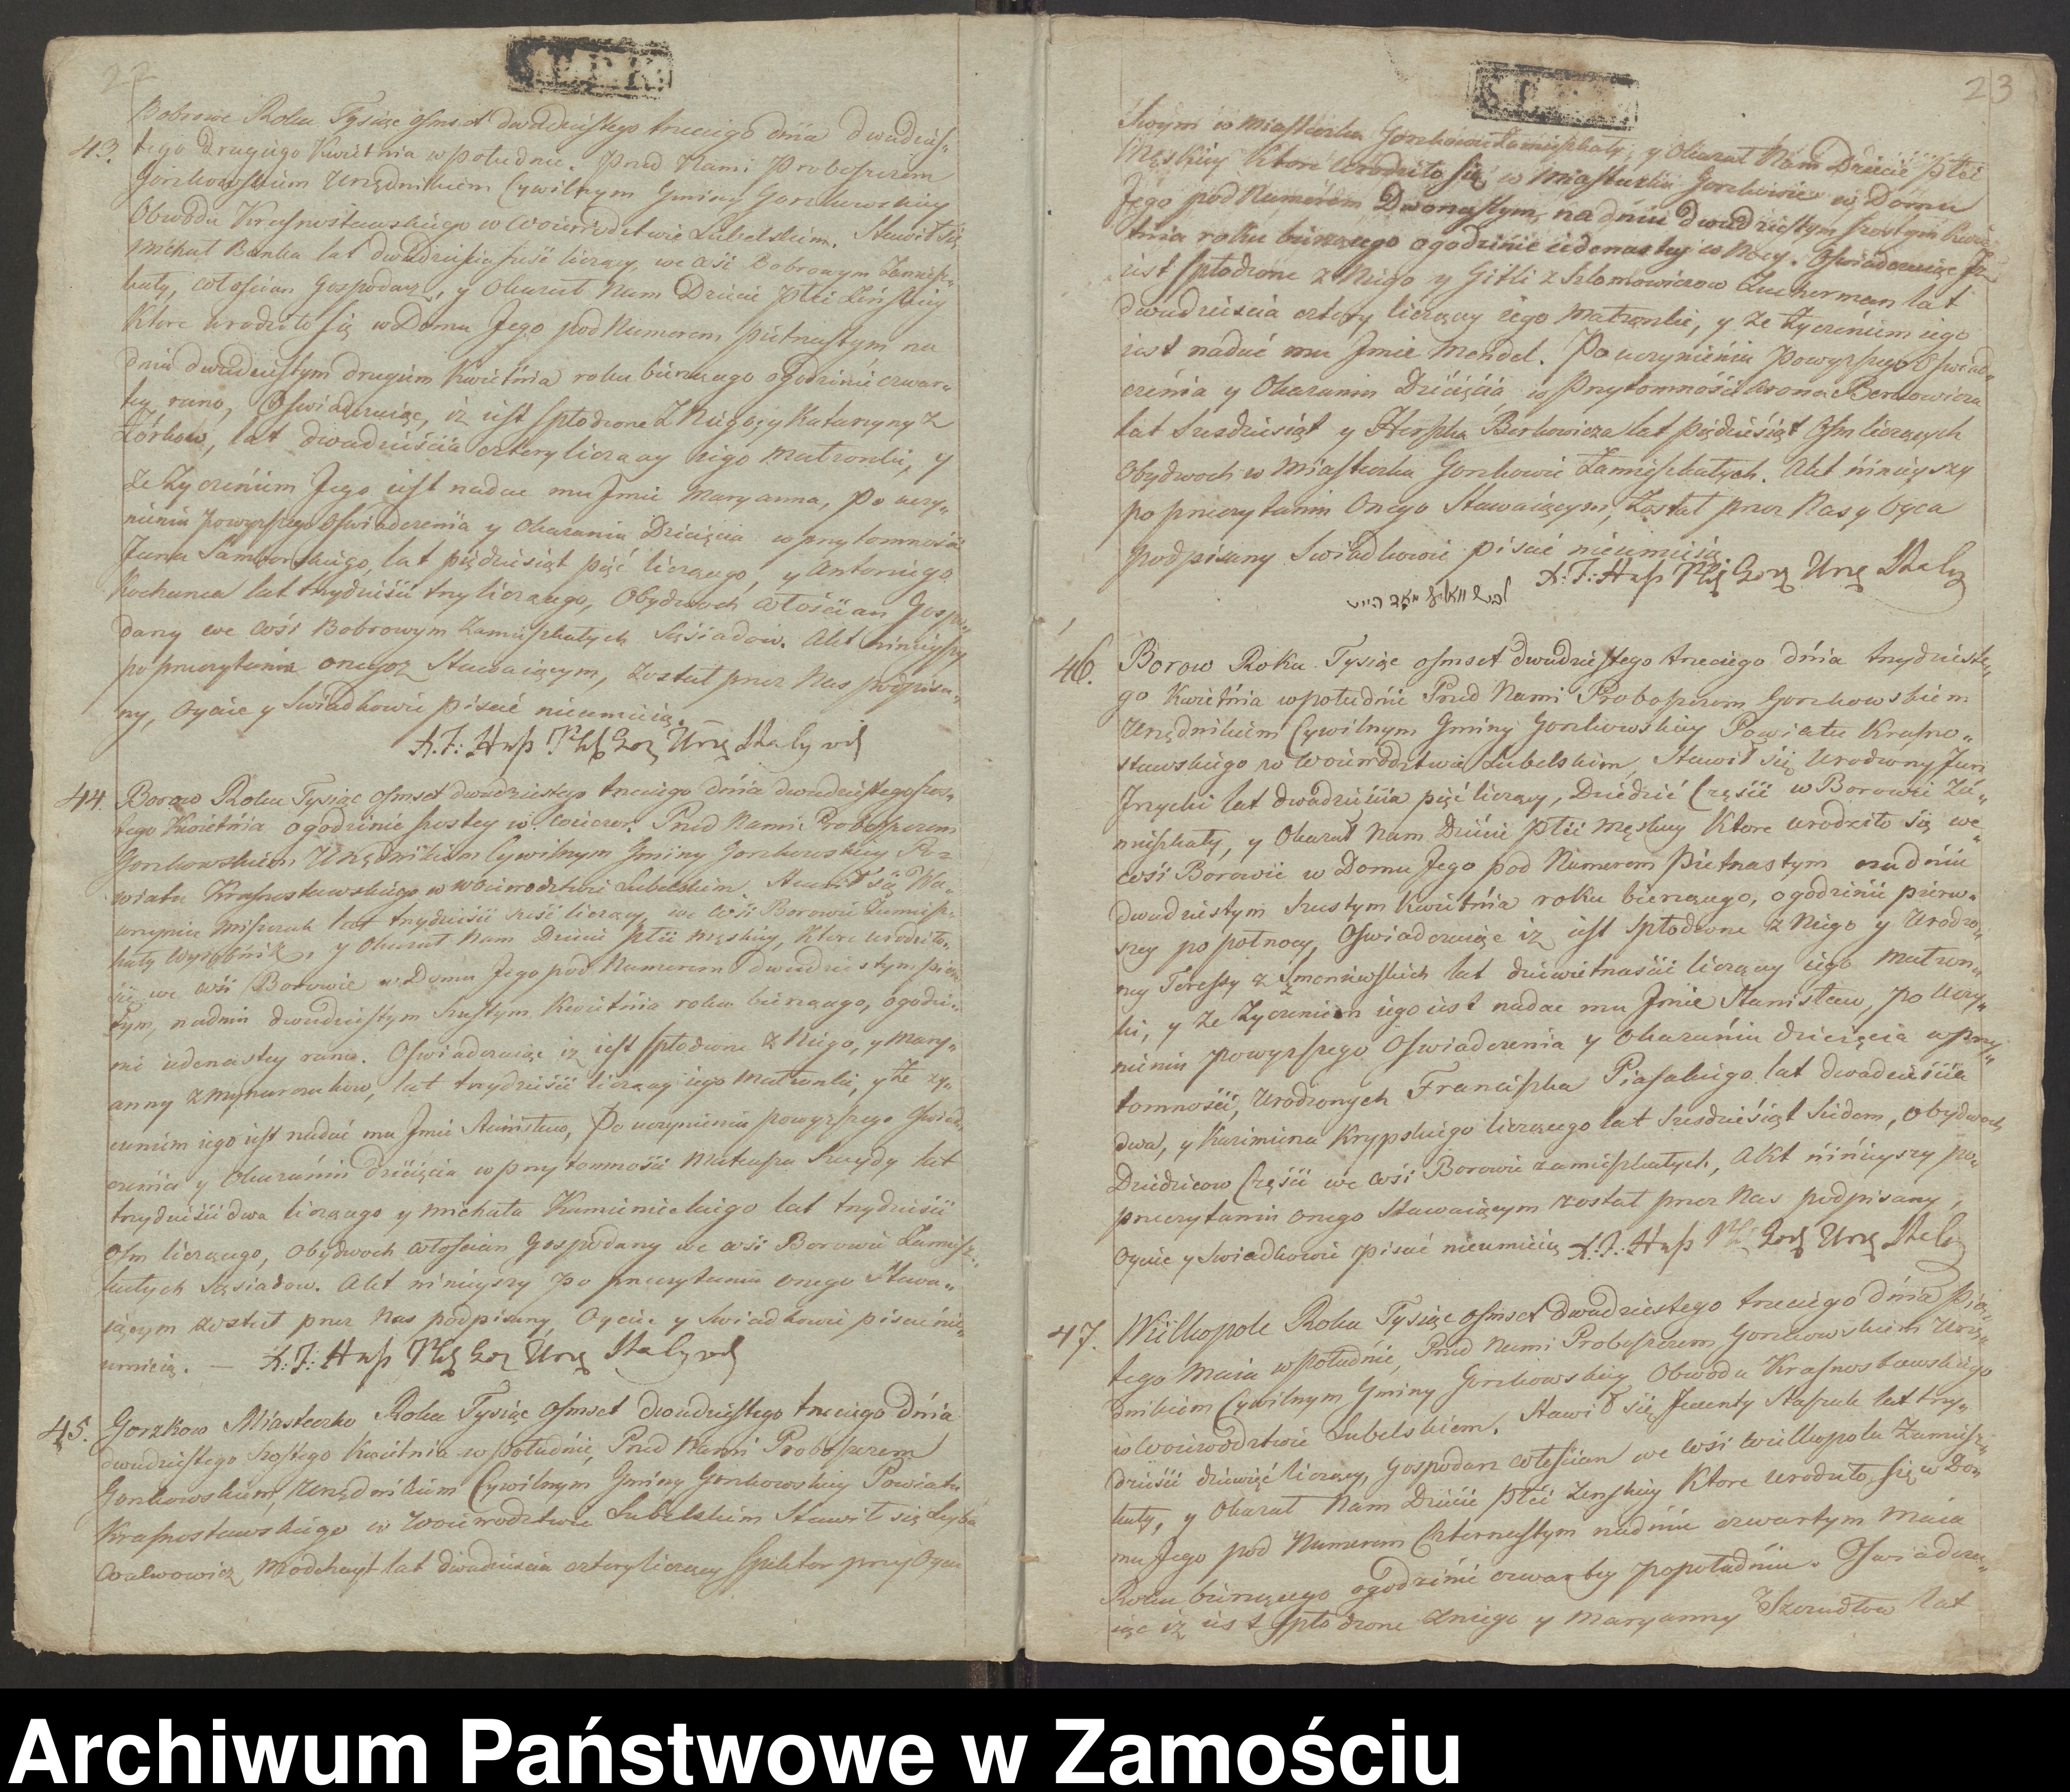 22
43.
Bobrowe Roku Tysiąc osmset dwudziestego trzeciego dnia dwudzies-
tego drugiego Kwietnia w południe. Przed Nami Proboszczem
Gorzkowskim Urzędnikiem Cywilnym Gminy Gorzkowskiey
Obwodu Krasnostawskiego w Woiewodztwie Lubelskim. Stawił się
Michał Banka lat dwadzieścia sześć liczący, we wsi Bobrowym Zamiesz-
kały, włościan Gospodarz, y Okazał Nam Dziecie płci Zeńskiey
Ktore urodziło się w Domu Jego pod Numerem piętnastym na
dniu dwudziestym drugim Kwietnia roku bieżącego o godzinie czwar-
tey rano, Oswiadczaiąc, iż iest spłodzone z Niego, y Katarzyny z
Zórkow, lat dwadzieścia cztery liczącey iego małzonki, y
Ze Zyczeniem Jego iest nadac mu Jmie Maryanna, Po uczy-
nieniu powyzszego Oswiadczenia y Okazaniu Dziecięcia w przytomności
Jana Samborskiego, lat pięćdziesiąt pięć liczącego, y Antoniego
Kochańca lat trzydzieści trzy liczącego, Obydwoch włościan Gospo-
darzy we wsi Bobrowym Zamieszkałych Sąsiadow. Akt ninieyszy
po przeczytaniu onegoz Stawaiącym, został przez Nas podpisa-
ny, Oyciec y Swiadkowie pisać nieumieią.
X. J: Hasz Gorz Urz Sta Cyw
44.
Borow Roku Tysiąc osmset dwudziestego trzeciego dnia dwudziestego szos-
tego Kwietnia o godzinie szostey w wieczor. Przed Nami Proboszczem
Gorzkowskim Urzędnikiem Cywilnym Gminy Gorzkowskiey Po-
wiatu Krasnostawskiego w Woiewodztwie Lubelskim. Stawił się Wa-
wrzyniec Miszczuk lat trzydzieści sześć liczący, we wsi Borowie Zamiesz-
kały Wyrobnik, y Okazał Nam Dziecie płci męskiey, Ktore urodziło
się we wsi Borowie w Domu Jego pod Numerem dwudziestym piąt-
tym, na dniu dwudziestym Szustym Kwietnia roku bieżącego, o godzi-
nie iedenastey rano. Oswiadczaiąc iz iest spłodzone z Niego, y Mary-
anny z lat trzydzieści liczącey iego Małzonki, y Ze zy-
czeniem iego iest nadać mu Jmie Stanisław, Po uczynieniu powyzszego Oswiad-
czenia y Okazaniu dziecięcia w przytomności Mateusza Szwydy lat
trzydzieści dwa liczącego y Michała Kamienieckiego lat trzydzieści
osm liczącego, Obydwoch włościan Gospodarzy we wsi Borowie Zamiesz-
kałych Sąsiadow. Akt ninieyszy po przeczytaniu onego Stawa-
iącym został przez Nas podpisany, Oyciec y Swiadkowie pisac nie
umieią. — X: J: Hasz Gorz Urz Sta Cyw
45.
Gorzkow Miasteczko Roku Tysiąc Osmset dwudziestego trzeciego dnia
dwudziestego szostego Kwietnia w południe, Przed Nami Proboszczem
Gorzkowskim, Urzędnikiem Cywilnym Gminy Gorzkowskiey Powiatu
Krasnostawskiego w Woiewodztwie Lubelskim Stawił się Leyba
Walwowicz lat dwadzieścia cztery liczący przy Oycu
23
Swym w miasteczku Gorzkowie Zamieszkały, y Okazał Nam Dziecie płci
Męskiey Ktore urodziło się w miasteczku Gorzkowie w Domu
Jego pod Numerem Dwonastym, na dniu dwudziestym szostym Kwie-
tnia roku bieżącego o godzinie iedenastey w Nocy. Oswiadczaiąc Jz
iest spłodzone z Niego y Gitli z Szlomowiczow Zucherman lat
dwadzieścia cztery liczącey iego Małzonki, y Ze Zyczeniem iego
iest nadać mu Jmie Mendel. Po uczynieniu Powyzszego Oswiad-
czenia y Okazaniu Dziecięcia w Przytomności Arona Berkowicza
lat Szesdziesiąt y Herszka Berkowicza lat Pięćdziesiąt Osm liczących
Obydwoch w Miasteczku Gorzkowie Zamieszkałych. Akt ninieyszy
po przeczytaniu Onego Stawaiącym, Został przez Nas y Oyca
podpisany Swiadkowie pisać nieumieią.
X: J: Hasz Gorz Urz Sta Cy
46.
Borow Roku Tysiąc osmset dwudziestego trzeciego dnia trzydzieste-
go Kwietnia w południe Przed Nami Proboszczem Gorzkowskiem
Urzędnikiem Cywilnym Gminy Gorzkowskiey Powiatu Krasno-
stawskiego w Woiewodztwie Lubelskim, Stawił się Urodzony Jan
Jrzycki lat dwadzieścia pięć liczący, Dziedzic Części w Borowie Za-
mieszkały, y Okazał Nam Dziecie płci Męskiey Ktore urodziło się we
wsi Borowie w Domu Jego pod Numerem Piętnastym na dniu
dwudziestym Szustym Kwietnia roku bieżącego, o godzinie pierw-
szey po połnocy, Oswiadczaiąc iz iest Spłodzone z Niego y Urodzo-
ney Teressy z lat dziewietnaście liczącey iego Małzon-
ki, y Ze Zyczeniem iego iest nadac mu Jmie Stanisław, po uczy-
nieniu powyzszego Oswiadczenia y Okazaniu dziecięcia w przy-
tomności, Urodzonych Franciszka Piasckiego lat dwadzieścia
dwa, y Kazimierza Krypskiego liczącego lat Szesdziesiąt Siedem, Obydwoch
Dziedzicow Części we wsi Borowie zamieszkałych, Akt ninieyszy po
przeczytaniu onego Stawaiącym został przez Nas podpisany,
Oyciec y Swiadkowie pisać nieumieią X. J: Hasz Gorz Urz Sta Cy
47.
Wielkopole Roku Tysiąc osmset dwudziestego trzeciego dnia pią-
tego Maia w południe, Przed Nami Proboszczem Gorzkowskiem Urzę-
dnikiem Cywilnym Gminy Gorzkowskiey Obwodu Krasnostawskiego
w Woiewodztwie Lubelskiem. Stawił się Jacenty Staszuk lat trzy-
dzieści dziewięć liczący, Gospodarz włościan we wsi Wielkopolu Zamiesz-
kały, y Okazał Nam Dziecie płci Zenskiey Ktore urodziło się w Do-
mu Jego pod Numerem Czternastym na dniu czwartym Maia
Roku bieżącego o godzinie czwartey popołudniu. Oswiadcza-
iąc iz iest spłodzone z niego y Maryanny lat
Archiwum Państwowe w Zamościu